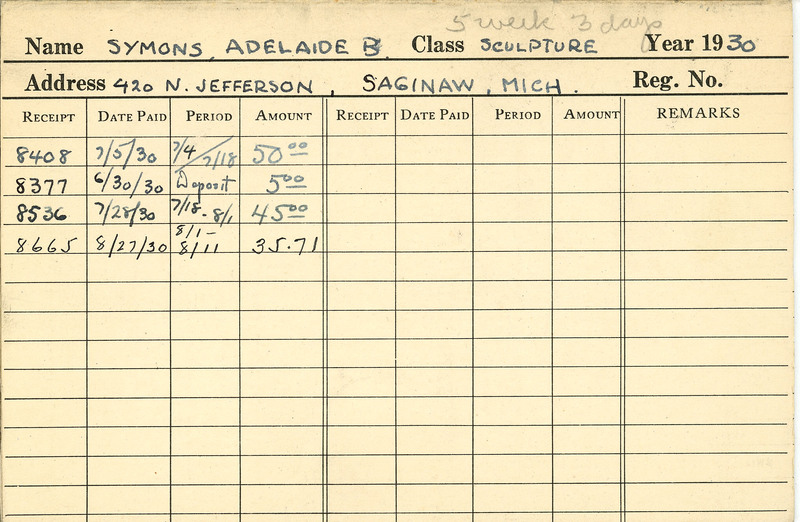 5 week 3 days
Name SYMONS, ADELAIDE B. Class SCULPTURE Year 1930
Address 420 N. JEFFERSON, SAGINAW, MICH. Reg. No.
RECEIPT DATE PAID PERIOD AMOUNT RECEIPT DATE PAID PERIOD AMOUNT REMARKS
8408 7/5/30 7/4 / 7/18 50 00
8377 6/30/30 Deposit 5 00
8536 7/28/30 7/18 - 8/1 45 00
8665 8/27/30 8/1 - 8/11 35.71